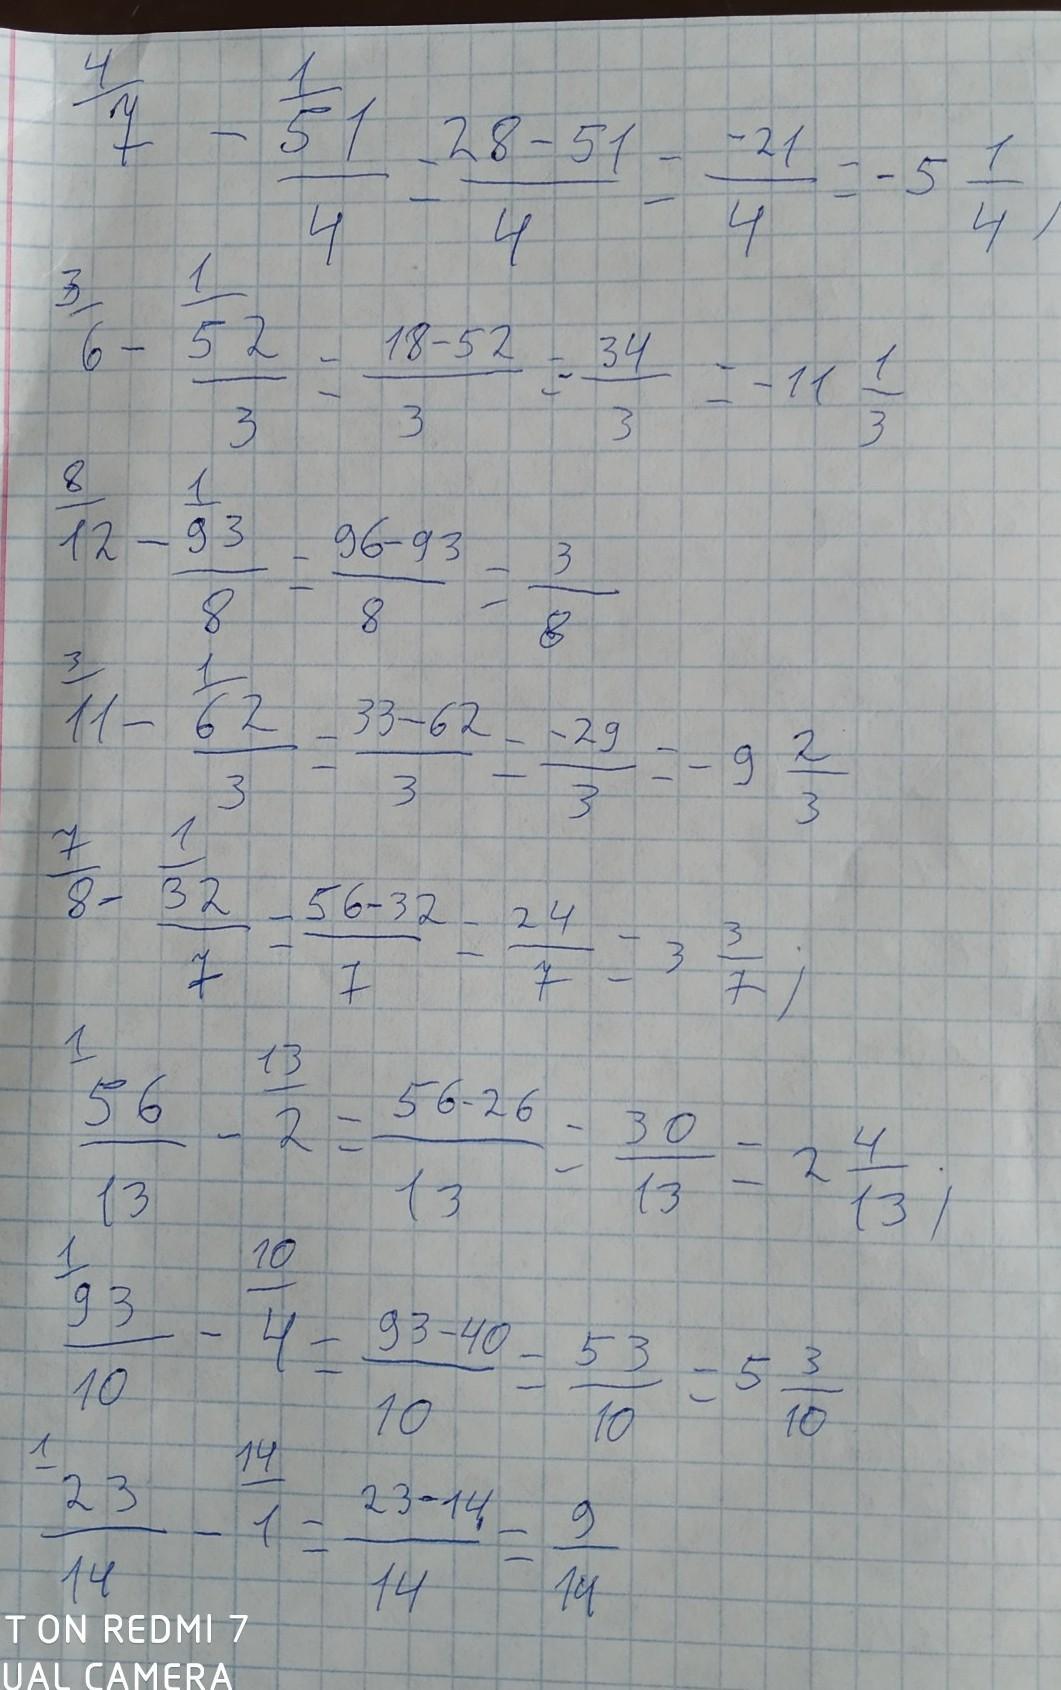 4/7 - 1/ 51/4 = 28-51/4 = -21/4 = -5 1/4;
3/6 - 1/ 52/3 = 18-52/3 = - 34/3 = -11 1/3
8/12 - 1/ 93/8 = 96-93/8 = 3/8
3/11 - 1/ 62/3 = 33-62/3 = -29/3 = - 9 2/3
7/8 - 1/ 32/7 = 56-32/7 = 24/7 = 3 3/7;
1/ 56/13 - 13/2 = 56-26/13 = 30/13 = 2 4/13;
1/ 93/10 - 10/4 = 93-40/10 = 53/10 = 5 3/10
1/ 23/14 - 14/1 = 23-14/14 = 9/14
T ON REDMI 7
UAL CAMERA